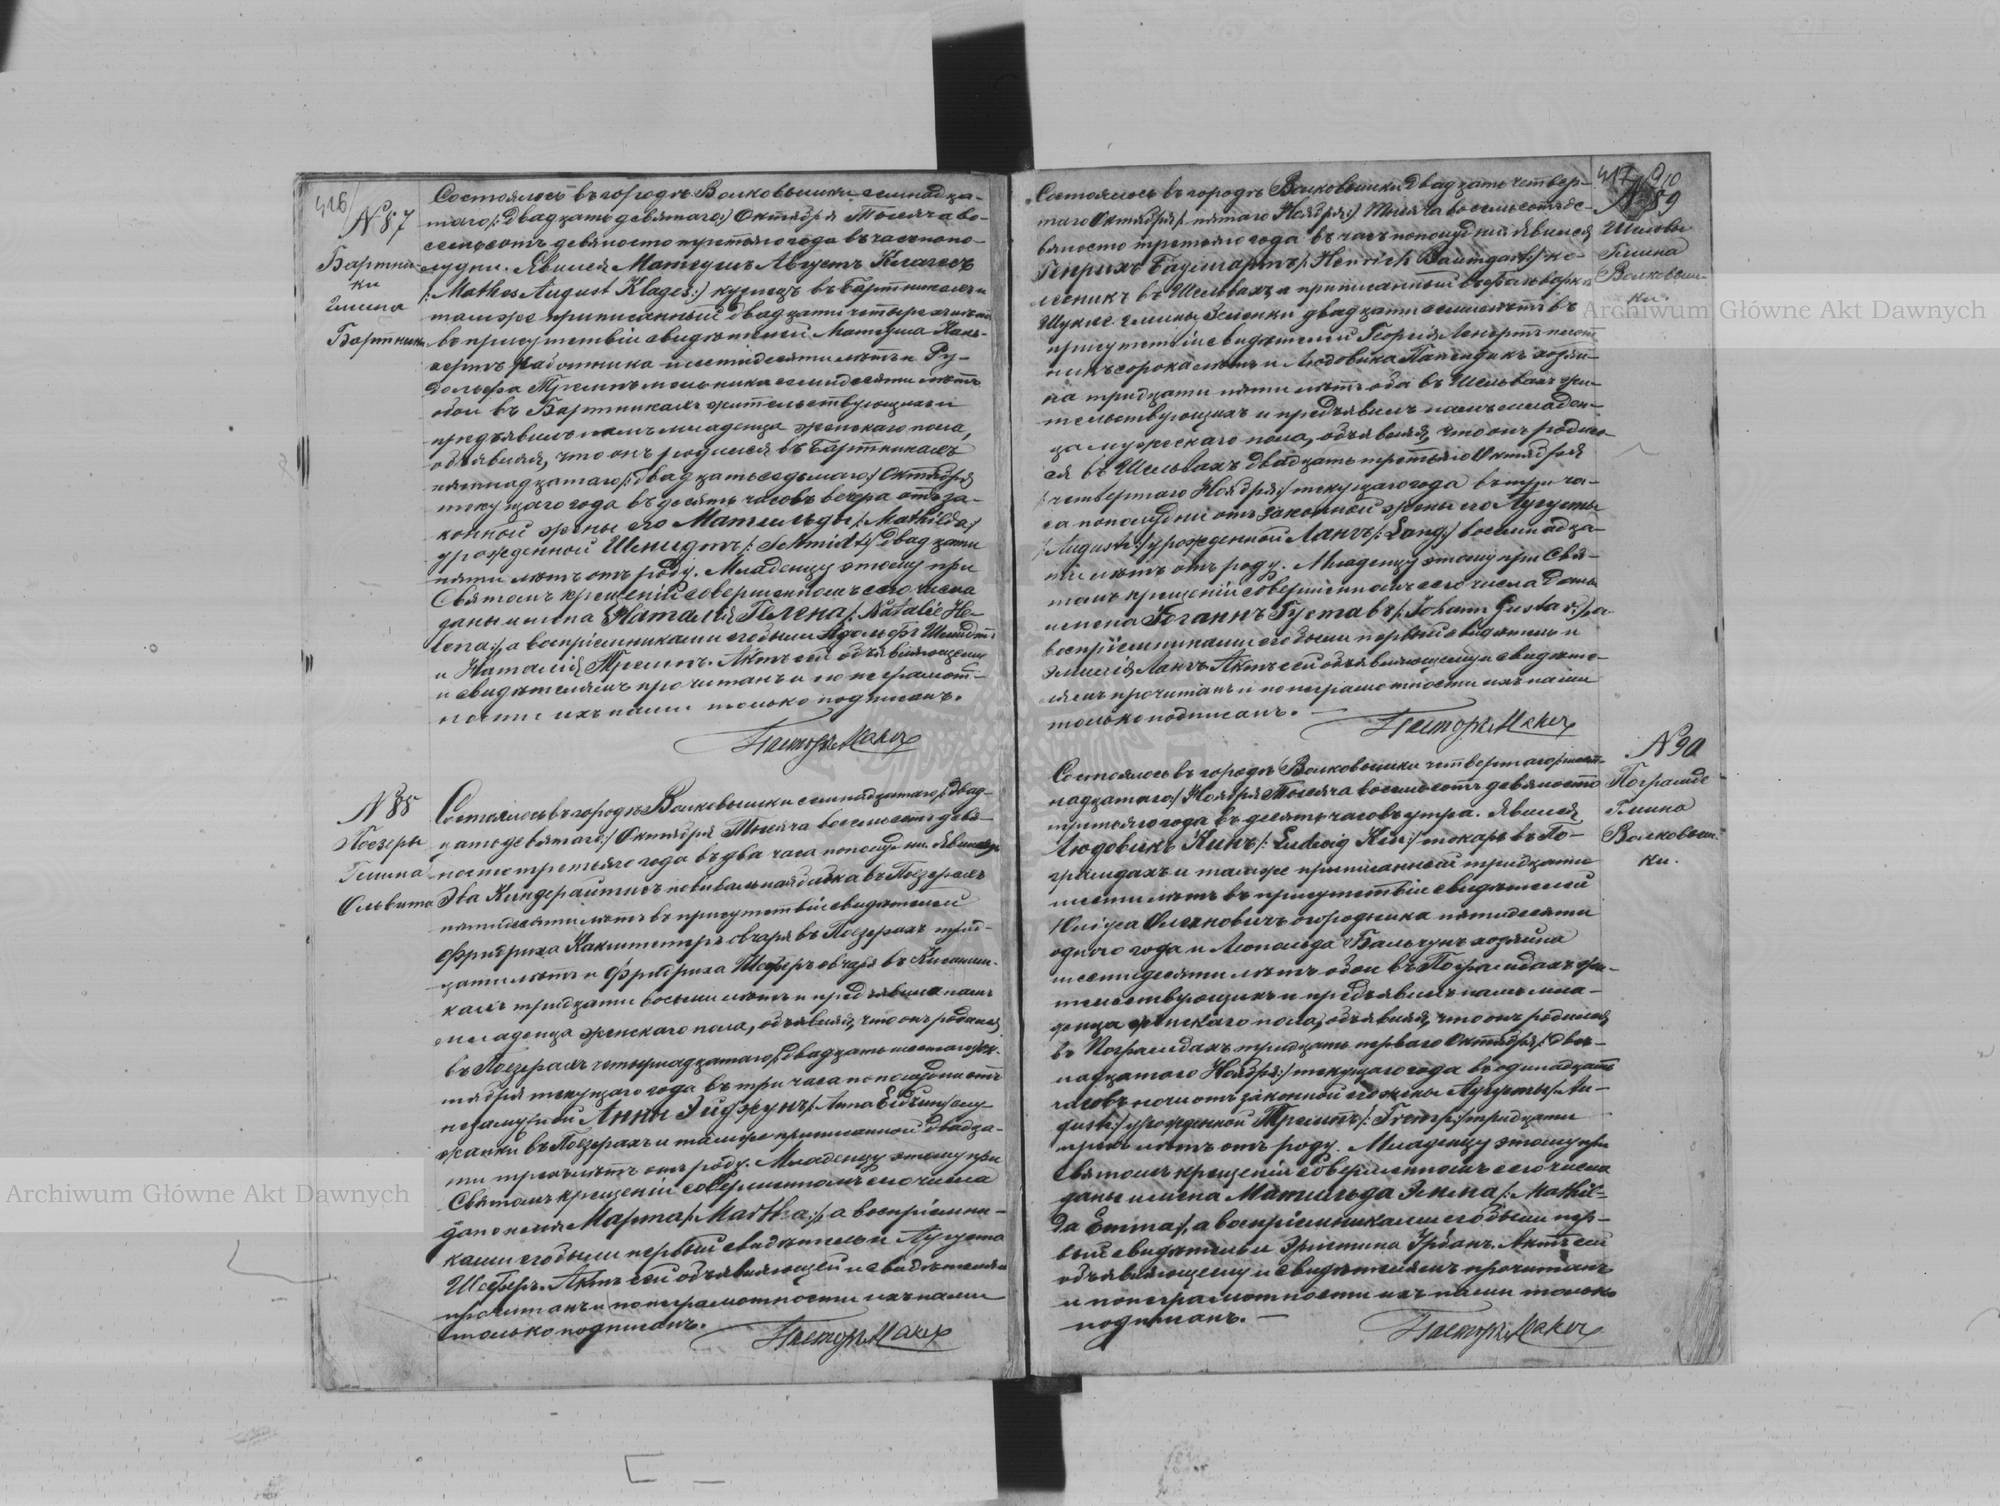 416
№ 87
Бартни-
ки
гмина
Бартники
Состоялось въ городѣ Волковышки семнадца-
таго /: двадцать девятаго :/ Октября Тысяча во-
семьсотъ девяносто третьяго года въ часъ попо-
лудни. Явился Матеушъ Августъ Клагесъ
/: Mathes August Klages :/ кузнецъ въ Бартникахъ и
тамже приписанный двадцати четырехъ лѣтъ
въ присутствіи свидѣтелей Матеуша
работника шестидесяти лѣтъ и Ру-
дольфа Тремпъ мельника семидесяти лѣтъ
обои въ Бартникахъ жительствующихъ и
предъявилъ намъ младенца женскаго пола,
объявляя, что онъ родился въ Бартникахъ
пятнадцатаго /: двадцать седьмаго :/ Октября
текущаго года въ десять часовъ вечера отъ за-
конной жены его Матильды /: Mathilda :/
урожденной Шмидтъ /: Schmidt :/ двадцати
пяти лѣтъ отъ роду. Младенцу этому при
Святомъ крещеніи совершенномъ сего числа
даны имена Наталія Гелена /: Natalie He-
lena :/, а воспріемниками его были Адольфъ Шмидтъ
и Наталія Тремпъ. Актъ сей объявляющему
и свидѣтелямъ прочитанъ и по неграмот-
ности ихъ нами только подписанъ.
Пасторъ
№ 88
Поезеры
Гмина
Ольвита
Состоялось въ городѣ Волковышки семнадцатаго /: двад-
цать девятаго :/ Октября Тысяча восемьсотъ девя-
носто третьяго года въ два часа пополудни. Явилась
Эва Киндерайтисъ повивальная бабка въ Поезерахъ
пятидесяти лѣтъ въ присутствіи свидѣтелей
Фридриха овчаря въ Поезерахъ трид-
цати лѣтъ и Фридриха Шеферъ овчаря въ
тридцати восьми лѣтъ и предъявила намъ
младенца женскаго пола, объявляя, что онъ родился
въ Поезерахъ четырнадцатаго /: двадцать шестаго :/ Ок-
тября текущаго года въ три часа пополудни отъ
незамужней Анны /: Anna :/ слу-
жанки въ Поезерахъ и тамже приписанной двадца-
ти трехъ лѣтъ отъ роду. Младенцу этому при
Святомъ крещеніи совершенномъ сего числа
дано имя Марта /: Martha :/, а воспріемни-
ками его были первый свидѣтель и Августа
Шеферъ. Актъ сей объявляющей и свидѣтелямъ
прочитанъ и по неграмотности ихъ нами
только подписанъ.
Пасторъ
417
№ 89
Шельвы
Гмина
Волковыш-
ки.
Состоялось въ городѣ Волковышки двадцать четвер-
таго Октября /: пятаго Ноября :/ Тысяча восемьсотъ де-
вяносто третьяго года въ часъ пополудни явился
Генрихъ Баумгартъ /: Henrich Baumgart :/ ко-
лесникъ въ Шельвахъ а приписанный въ фольваркѣ
гмины двадцати семи лѣтъ въ
присутствіи свидѣтелей Георгія плот-
никъ сорока лѣтъ и Людовика хозяи-
на тридцати пяти лѣтъ оба въ Шельвахъ жи-
тельствующихъ и предъявилъ намъ младен-
ца мужескаго пола, объявляя, что онъ родил-
ся въ Шельвахъ двадцать третьяго Октября
/: четвертаго Ноября :/ текущаго года въ три ча-
са пополудни отъ законной жены его Августы
/: Auguste :/ урожденной Лангъ /: Lang :/ восемнадца-
ти лѣтъ отъ роду. Младенцу этому при Свя-
томъ крещеніи совершенномъ сего числа даны
имена Іоганнъ Густавъ /: Johann Gustav :/, а
воспріемниками его были первый свидѣтель и
Эмилія Лангъ. Актъ сей объявляющему и свидѣте-
лямъ прочитанъ и по неграмотности ихъ нами
только подписанъ. —
Пасторъ
№ 90
Погрaмде
Гмина
Волковыш-
ки.
Состоялось въ городѣ Волковышки четвертаго /: шест-
надцатаго :/ Ноября Тысяча восемьсотъ девяносто
третьяго года въ десять часовъ утра. Явился
Людовикъ /: Ludwig :/ токарь въ По-
и тамже приписанный тридцати
шести лѣтъ въ присутствіи свидѣтелей
Юліуса огородника пятидесяти
одного года и Леопольда хозяина
шестидесяти лѣтъ обои въ жи-
тельствующихъ и предъявилъ намъ мла-
денца женскаго пола, объявляя, что онъ родился
въ тридцать перваго Октября /: двѣ-
надцатаго Ноября :/ текущаго года въ одинадцать
часовъ ночи отъ законной его жены Августы /: Au-
guste :/ урожденной Тремпъ /: Tremp :/ тридцати
трехъ лѣтъ отъ роду. Младенцу этому при
Святомъ крещеніи совершенномъ сего числа
даны имена Матильда Эмма /: Mathil-
da Emma :/, а воспріемниками его были пер-
вый свидѣтель и Урбанъ. Актъ сей
объявляющему и свидѣтелямъ прочитанъ
и по неграмотности ихъ нами только
подписанъ. —
Пасторъ
Archiwum Główne Akt Dawnych
Archiwum Główne Akt Dawnych